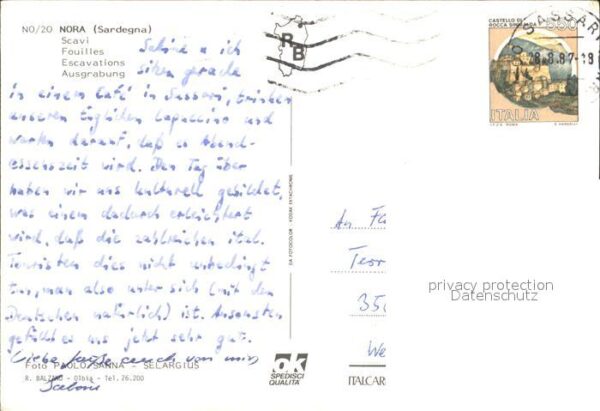 NO/20 NORA (Sardegna)
Scavi
Fouilles
Escavations
Ausgrabung
Sabine u. ich
sitzen gerade
in einem Café in Sassari, trinken
unseren täglichen Capuccino und
warten darauf, daß es Abend-
essenszeit wird. Den Tag über
haben wir uns kulturell gebildet,
was einem dadurch erleichtert
wird, daß die zahlreichen ital.
Touristen dies nicht unbedingt
tun, man also unter sich (mit den
Deutschen natürlich) ist. Ansonsten
gefällt es uns jetzt sehr gut.
Liebe Grüße auch von mir
Sabine
Foto PAOLO SANNA - SELARGIUS
R. BALZANO - Olbia - Tel. 26.200
DA FOTOCOLOR - KODAK EKTACHROME
RB
CASTELLO DI
ROCCA SINIBALDA
550
ITALIA
SASSARI
8.8.87-18
An Fa
35
We
privacy protection
Datenschutz
ok
SPEDISCI
QUALITA'
ITALCAR